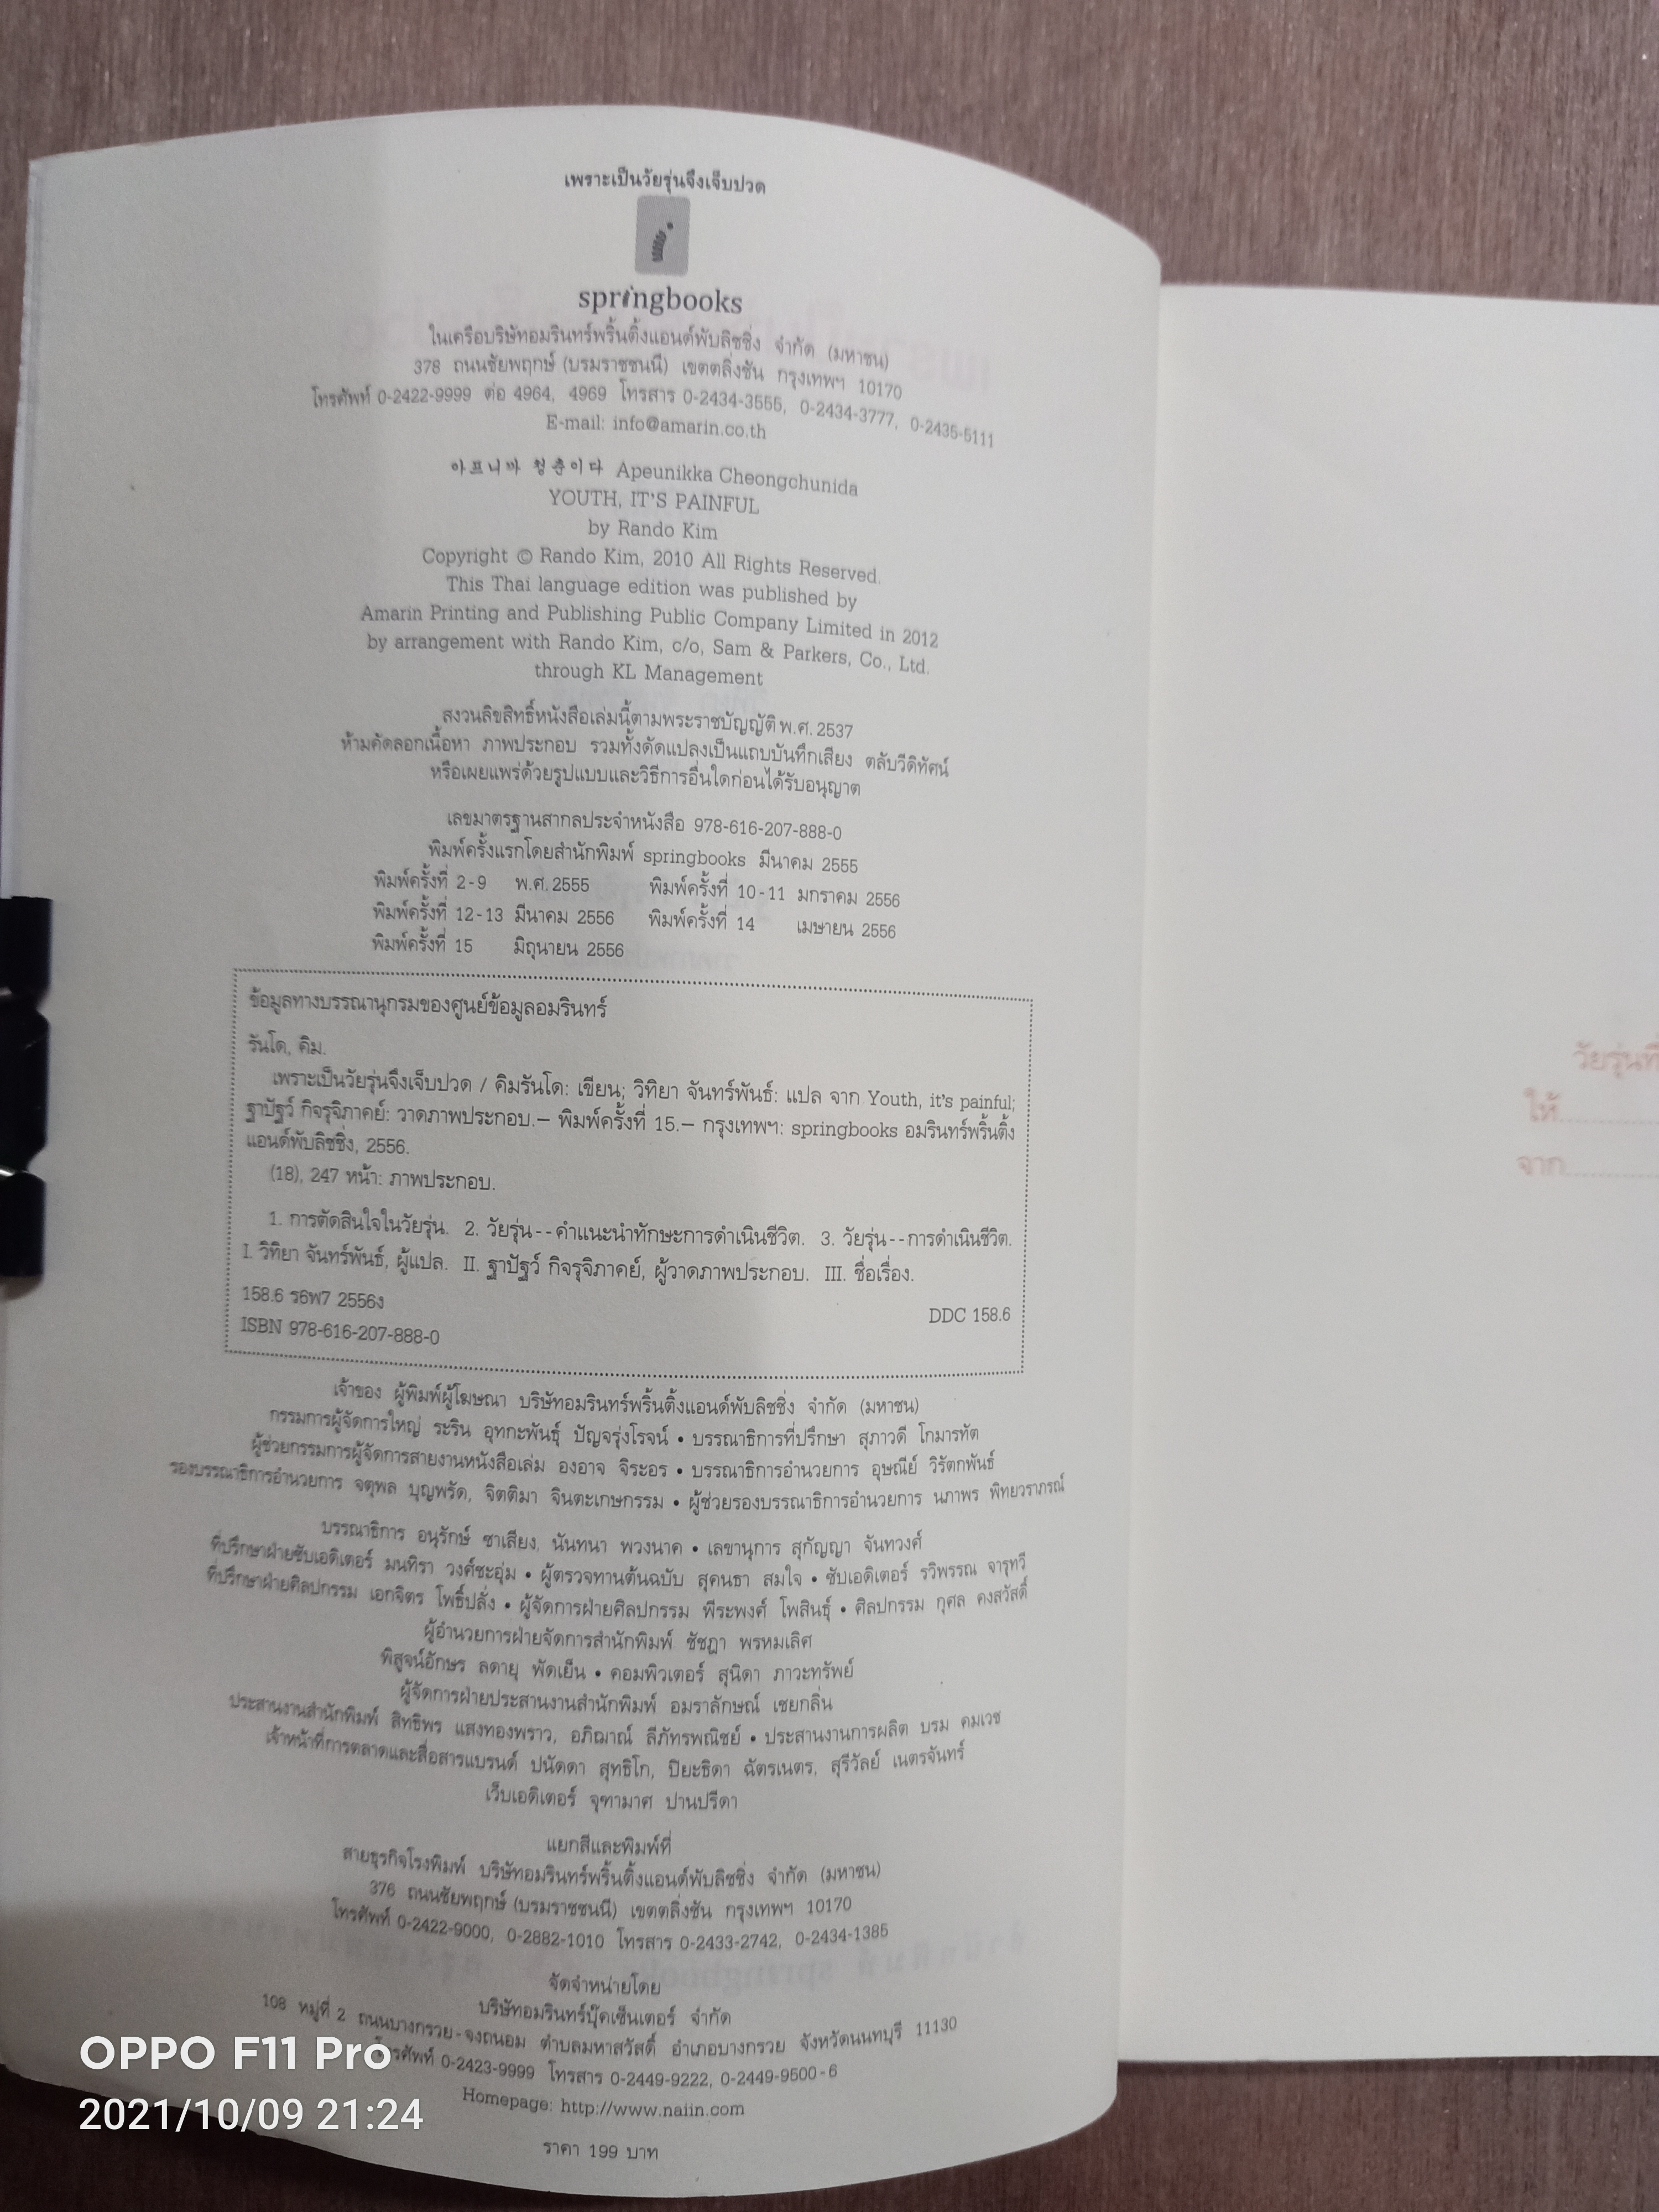 เพราะเป็นวัยรุ่นจึงเจ็บปวด
springbooks
ในเครือบริษัทอมรินทร์พริ้นติ้งแอนด์พับลิชชิ่ง จำกัด (มหาชน)
378 ถนนชัยพฤกษ์ (บรมราชชนนี) เขตตลิ่งชัน กรุงเทพฯ 10170
โทรศัพท์ 0-2422-9999 ต่อ 4964, 4969 โทรสาร 0-2434-3555, 0-2434-3777, 0-2435-5111
E-mail: info@amarin.co.th
아프니까 청춘이다 Apeunikka Cheongchunida
YOUTH, IT'S PAINFUL
by Rando Kim
Copyright © Rando Kim, 2010 All Rights Reserved.
This Thai language edition was published by
Amarin Printing and Publishing Public Company Limited in 2012
by arrangement with Rando Kim, c/o, Sam & Parkers, Co., Ltd.
through KL Management
สงวนลิขสิทธิ์หนังสือเล่มนี้ตามพระราชบัญญัติ พ.ศ. 2537
ห้ามคัดลอกเนื้อหา ภาพประกอบ รวมทั้งดัดแปลงเป็นแถบบันทึกเสียง ตลับวีดิทัศน์
หรือเผยแพร่ด้วยรูปแบบและวิธีการอื่นใดก่อนได้รับอนุญาต
เลขมาตรฐานสากลประจำหนังสือ 978-616-207-888-0
พิมพ์ครั้งแรกโดยสำนักพิมพ์ springbooks มีนาคม 2555
พิมพ์ครั้งที่ 2-9 พ.ศ. 2555 พิมพ์ครั้งที่ 10-11 มกราคม 2556
พิมพ์ครั้งที่ 12-13 มีนาคม 2556 พิมพ์ครั้งที่ 14 เมษายน 2556
พิมพ์ครั้งที่ 15 มิถุนายน 2556
ข้อมูลทางบรรณานุกรมของศูนย์ข้อมูลอมรินทร์
รันโด, คิม.
เพราะเป็นวัยรุ่นจึงเจ็บปวด / คิมรันโด: เขียน; วิทิยา จันทร์พันธ์: แปล จาก Youth, it's painful;
ฐาปัฐว์ กิจรุจิภาคย์: วาดภาพประกอบ.— พิมพ์ครั้งที่ 15.— กรุงเทพฯ: springbooks อมรินทร์พริ้นติ้ง
แอนด์พับลิชชิ่ง, 2556.
(18), 247 หน้า: ภาพประกอบ.
1. การตัดสินใจในวัยรุ่น. 2. วัยรุ่น--คำแนะนำทักษะการดำเนินชีวิต. 3. วัยรุ่น--การดำเนินชีวิต.
I. วิทิยา จันทร์พันธ์, ผู้แปล. II. ฐาปัฐว์ กิจรุจิภาคย์, ผู้วาดภาพประกอบ. III. ชื่อเรื่อง.
158.6 ร6พ7 2556ง
DDC 158.6
ISBN 978-616-207-888-0
เจ้าของ ผู้พิมพ์ผู้โฆษณา บริษัทอมรินทร์พริ้นติ้งแอนด์พับลิชชิ่ง จำกัด (มหาชน)
กรรมการผู้จัดการใหญ่ ระริน อุทกะพันธุ์ ปัญจรุ่งโรจน์ • บรรณาธิการที่ปรึกษา สุภาวดี โกมารทัต
ผู้ช่วยกรรมการผู้จัดการสายงานหนังสือเล่ม องอาจ จิระอร • บรรณาธิการอำนวยการ อุษณีย์ วิรัตกพันธ์
รองบรรณาธิการอำนวยการ จตุพล บุญพรัด, จิตติมา จินตะเกษกรรม • ผู้ช่วยรองบรรณาธิการอำนวยการ นภาพร พิทยวราภรณ์
บรรณาธิการ อนุรักษ์ ซาเสียง, นันทนา พวงนาค • เลขานุการ สุกัญญา จันทวงศ์
ที่ปรึกษาฝ่ายซับเอดิเตอร์ มนทิรา วงศ์ชะอุ่ม • ผู้ตรวจทานต้นฉบับ สุคนธา สมใจ • ซับเอดิเตอร์ รวิพรรณ จารุทวี
ที่ปรึกษาฝ่ายศิลปกรรม เอกจิตร โพธิ์ปลั่ง • ผู้จัดการฝ่ายศิลปกรรม พีระพงศ์ โพสินธุ์ • ศิลปกรรม กุศล คงสวัสดิ์
ผู้อำนวยการฝ่ายจัดการสำนักพิมพ์ ชัชฎา พรหมเลิศ
พิสูจน์อักษร ลดายุ พัดเย็น • คอมพิวเตอร์ สุนิดา ภาวะทรัพย์
ผู้จัดการฝ่ายประสานงานสำนักพิมพ์ อมราลักษณ์ เชยกลิ่น
ประสานงานสำนักพิมพ์ สิทธิพร แสงทองพราว, อภิฌาณ์ ลีภัทรพณิชย์ • ประสานงานการผลิต บรม คมเวช
เจ้าหน้าที่การตลาดและสื่อสารแบรนด์ ปนัดดา สุทธิโก, ปิยะธิดา ฉัตรเนตร, สุรีวัลย์ เนตรจันทร์
เว็บเอดิเตอร์ จุฑามาศ ปานปรีดา
แยกสีและพิมพ์ที่
สายธุรกิจโรงพิมพ์ บริษัทอมรินทร์พริ้นติ้งแอนด์พับลิชชิ่ง จำกัด (มหาชน)
376 ถนนชัยพฤกษ์ (บรมราชชนนี) เขตตลิ่งชัน กรุงเทพฯ 10170
โทรศัพท์ 0-2422-9000, 0-2882-1010 โทรสาร 0-2433-2742, 0-2434-1385
จัดจำหน่ายโดย
บริษัทอมรินทร์บุ๊คเซ็นเตอร์ จำกัด
108 หมู่ที่ 2 ถนนบางกรวย-จงถนอม ตำบลมหาสวัสดิ์ อำเภอบางกรวย จังหวัดนนทบุรี 11130
โทรศัพท์ 0-2423-9999 โทรสาร 0-2449-9222, 0-2449-9500-6
Homepage: http://www.naiin.com
ราคา 199 บาท
วัยรุ่นที่
ให้
จาก
OPPO F11 Pro
2021/10/09 21:24